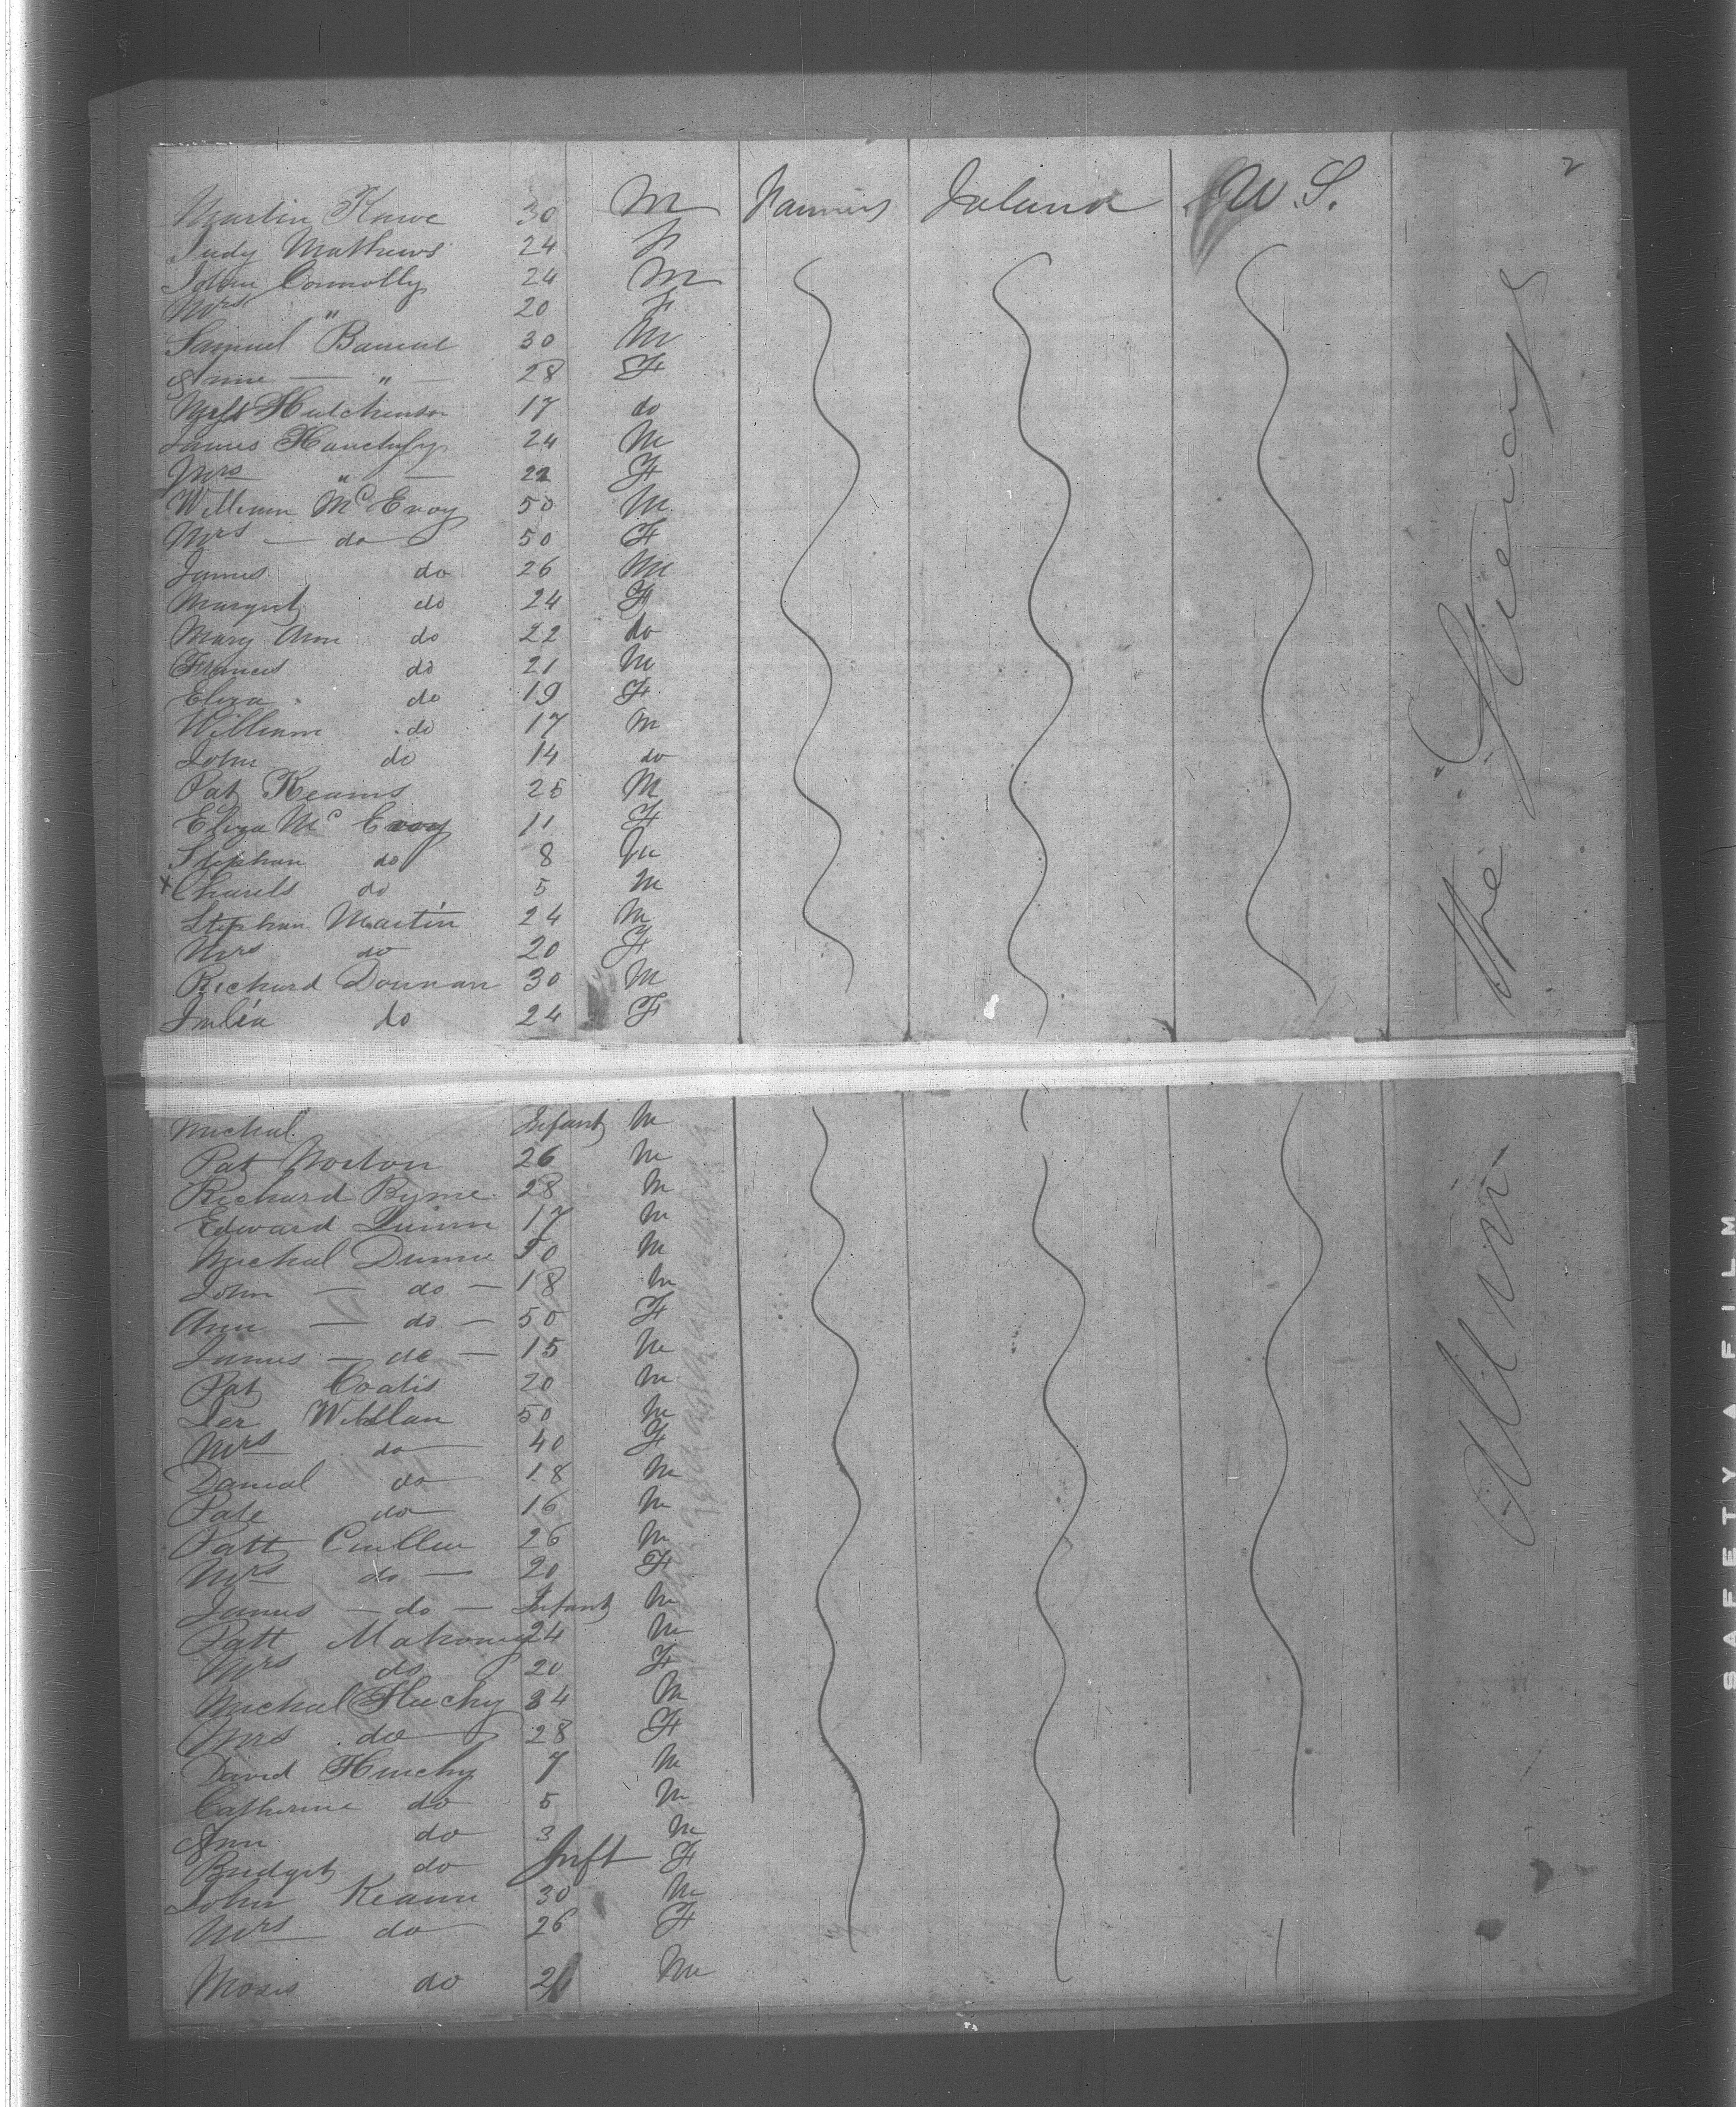 2
Martin Kawe 30 M Farmers Ireland U.S.
Judy Mathews 24 F
John Connolly 24 M
Mrs " 20 F
Samuel 30 M
Anne — " — 28 F
Hutchinson 17 do
James 24 M
Mrs " — 22 F
William McEvoy 50 M
Mrs — do 50 F
James do 26 M
Margret do 24 F
Mary Ann do 22 do
Frances do 21 M
Eliza do 19 F
William do 17 M
John do 14 do
Pat Kearns 25 M
Eliza McEvoy 11 F
Stephan do 8 M
x Charels do 5 M
Stephan Martin 24 M
Mrs do 20 F
Richard Dounan 30 M
Julia do 24 F
Michal Infant M
Pat Norton 26 M
Richard Byrne 28 M
Edward Quinn 17 M
Michal Dunne 50 M
John — do — 18 M
Ann — do — 50 F
James — do — 15 M
Pat Coatis 20 M
Der 50 M
Mrs do 40 F
Danial do 18 M
Pate do 16 M
Patt Cullen 26 M
Mrs do — 20 F
James — do — Infant M
Patt Mahoney 24 M
Mrs do 20 F
Michal Huchy 34 M
Mrs do 28 F
David Huchy 7 M
Catherine do 5 M
Ann do 3 M
Bridget do Inft F
John Keann 30 M
Mrs do 26 F
Moses do M
All in the Steerage
SAFETY ▲ FILM